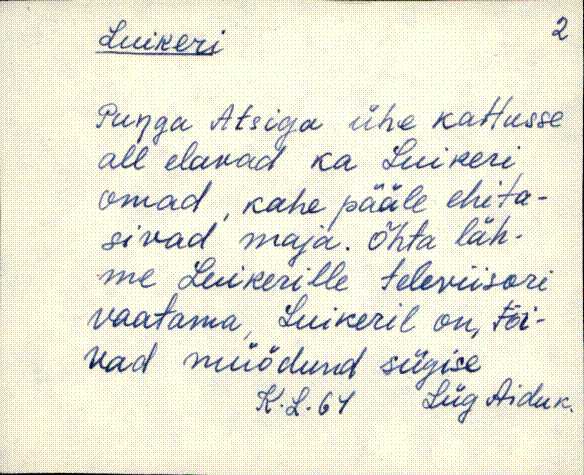 2
Luikeri
Puŋga Atsiga ühe kattusse
all elavad ka Luikeri
omad, kahe pääle ehita-
sivad maja. Õhta läh-
me Luikerille televiisori
vaatama, Luikeril on, tõi-
vad müödund sügise
K.L. 64 Lüg Aiduk.